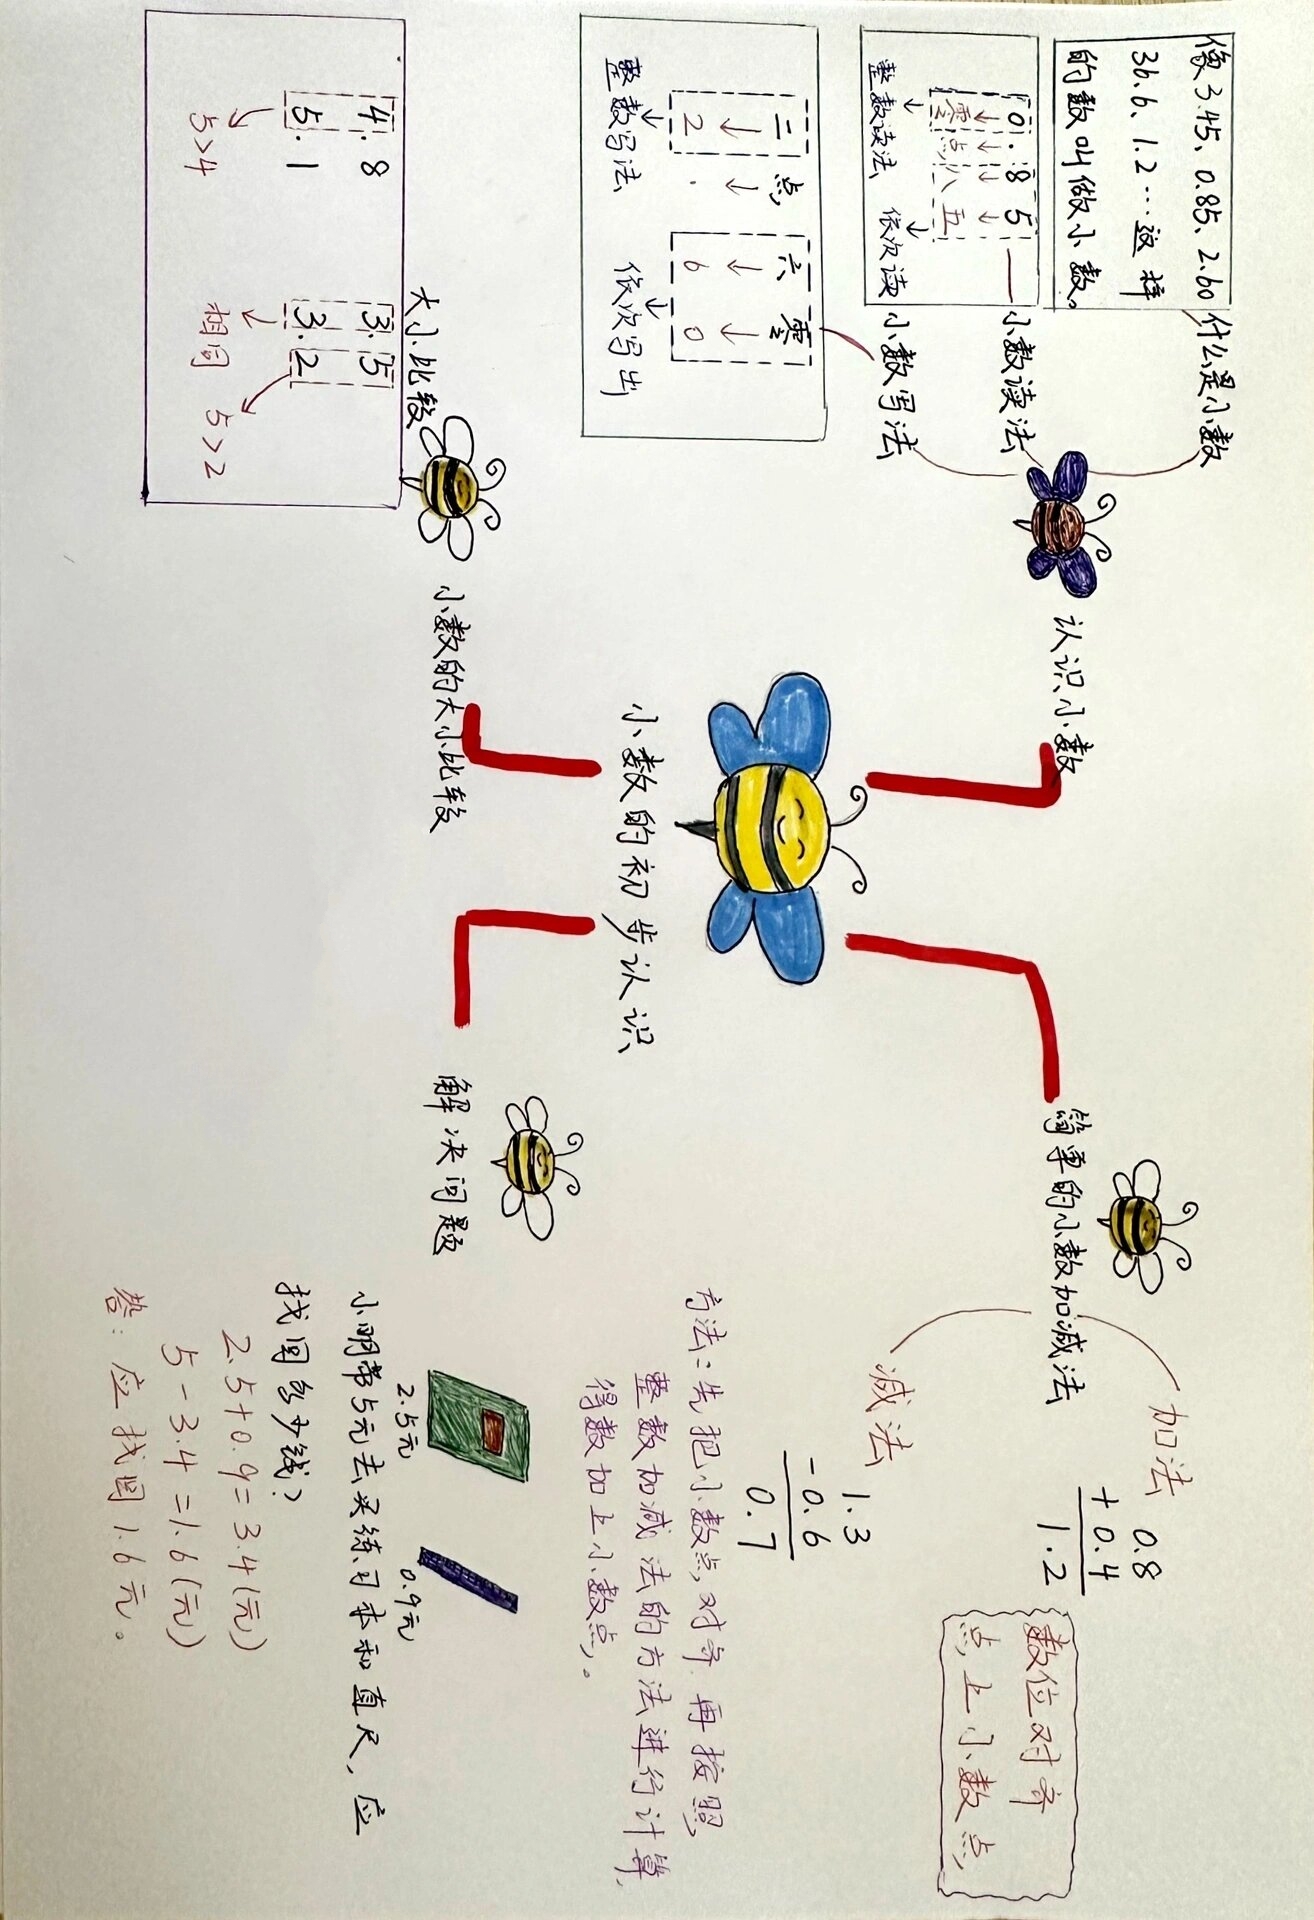 小数的初步认识
认识小数
什么是小数
像3.45、0.85、2.60
36.6、1.2…这样
的数叫做小数。
小数读法
0.85
零点八五
整数读法 依次读
小数写法
二点六零
2.60
整数写法 依次写出
小数的大小比较
大小比较
4.8
5.1
5>4
3.5
3.2
相同 5>2
简单的小数加减法
加法
0.8
+0.4
1.2
数位对齐
点上小数点
减法
1.3
-0.6
0.7
方法：先把小数点对齐 再按照
整数加减法的方法进行计算
得数加上小数点。
解决问题
2.5元 0.9元
小明带5元去买练习本和直尺，应
找回多少钱？
2.5+0.9=3.4(元)
5-3.4=1.6(元)
答：应找回1.6元。